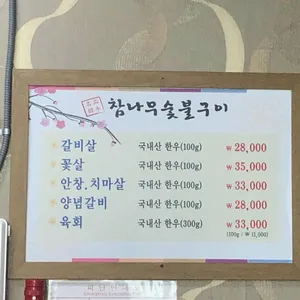 참나무숯불구이
갈비살 국내산 한우(100g) ₩ 28,000
꽃살 국내산 한우(100g) ₩ 35,000
안창,치마살 국내산 한우(100g) ₩ 33,000
양념갈비 국내산 한우(100g) ₩ 28,000
육회 국내산 한우(300g) ₩ 33,000
(100g / ₩ 11,000)